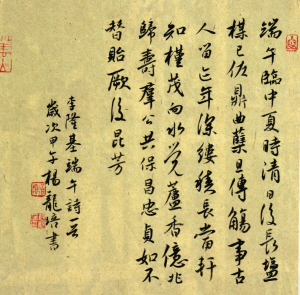 端午臨中夏時清日復長鹽
楳已佐鼎曲蘖且傳觴事古
人留迹年深縷積長當軒
知槿茂向水覺蘆香億兆
歸壽羣公共保昌忠貞如不
替貽厥後昆芳
李隆基端午詩一首
歲次甲午楊龍培書